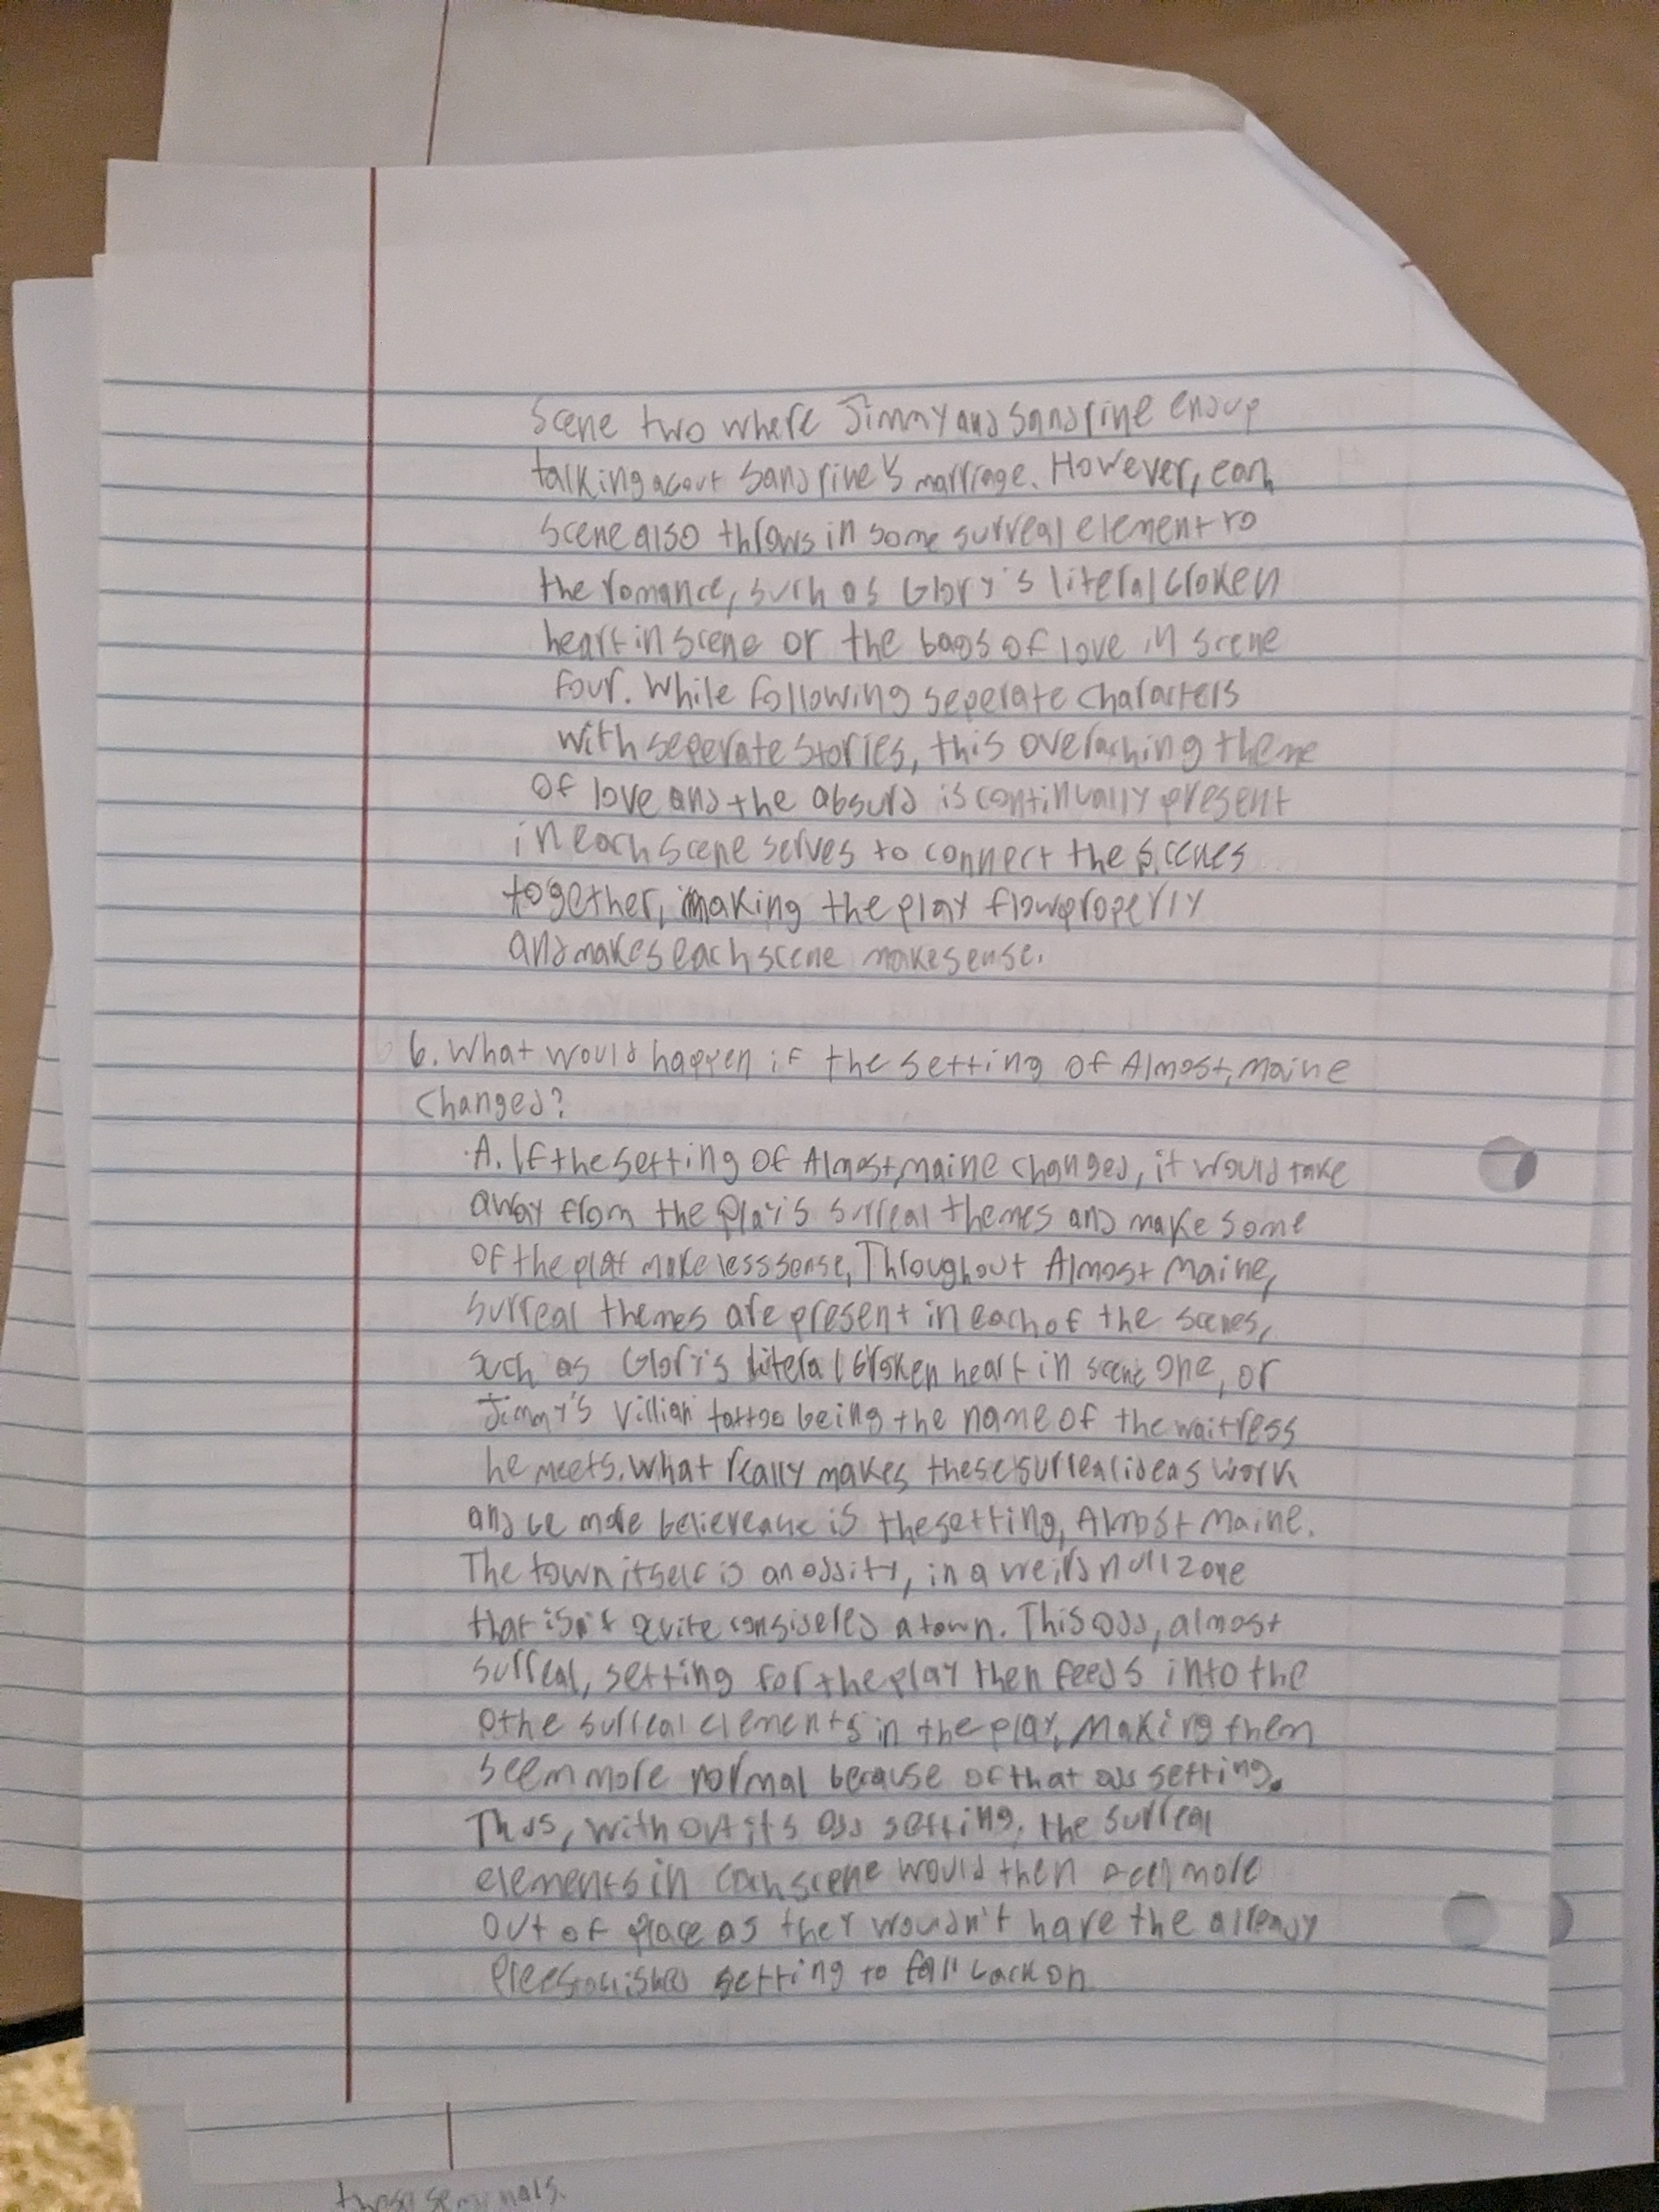 Scene two where Jimmy and Sandrine end up
talking about Sandrine's marriage. However, each
scene also throws in some surreal element to
the romance, such as Glory's literal broken
heart in scene or the bags of love in scene
four. While following seperate characters
with seperate stories, this overarching theme
of love and the absurd is continually present
in each scene serves to connect the scenes
together, making the play flow properly
and makes each scene make sense.
6. What would happen if the setting of Almost, Maine
changed?
A. If the setting of Almost, Maine changed, it would take
away from the play's surreal themes and make some
of the plot make less sense. Throughout Almost Maine,
surreal themes are present in each of the scenes,
such as Glory's literal broken heart in scene one, or
Jimmy's villian tattoo being the name of the waitress
he meets. What really makes these surreal ideas work
and be more believeable is the setting, Almost Maine.
The town itself is an oddity, in a weird null zone
that isn't quite considered a town. This odd, almost
surreal, setting for the play then feeds into the
othe surreal elements in the play, making them
seem more normal because of that odd setting.
Thus, without its odd setting, the surreal
elements in each scene would then feel more
out of place as they wouldn't have the already
preestablished setting to fall back on